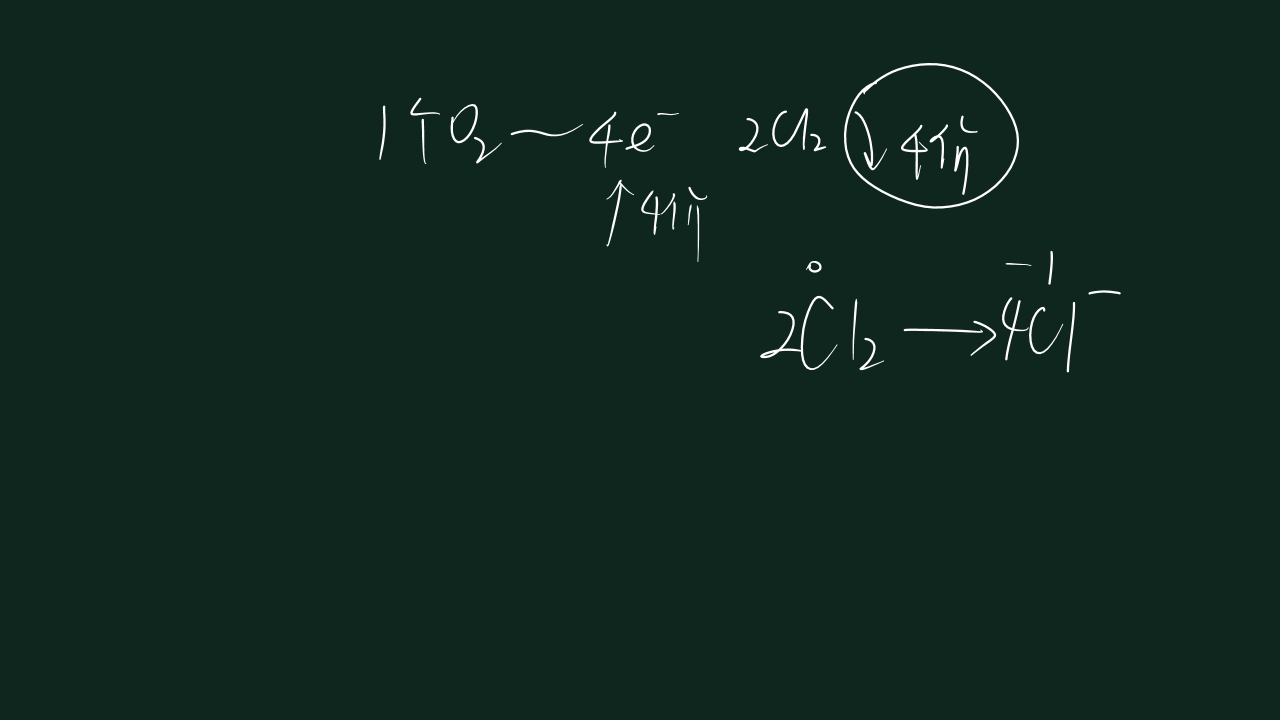 1个O₂～4e⁻ 2Cl₂ ↓4价
↑4价
0 -1
2Cl₂→4Cl⁻